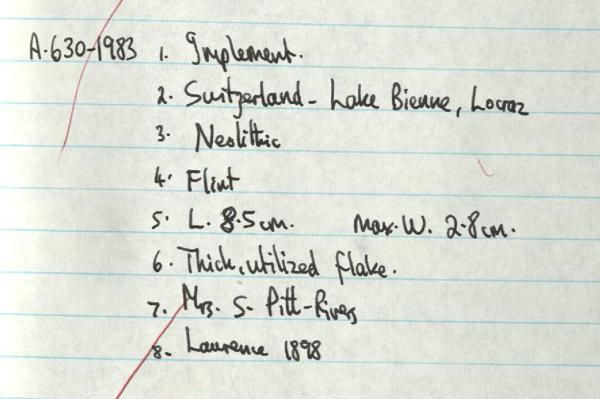 A.630-1983 1. Implement.
2. Switzerland - Lake Bienne, Locraz
3. Neolithic
4. Flint
5. L. 8.5cm. Max. W. 2.8cm.
6. Thick, utilized flake.
7. Mrs. S. Pitt-Rivers
8. Laurence 1898